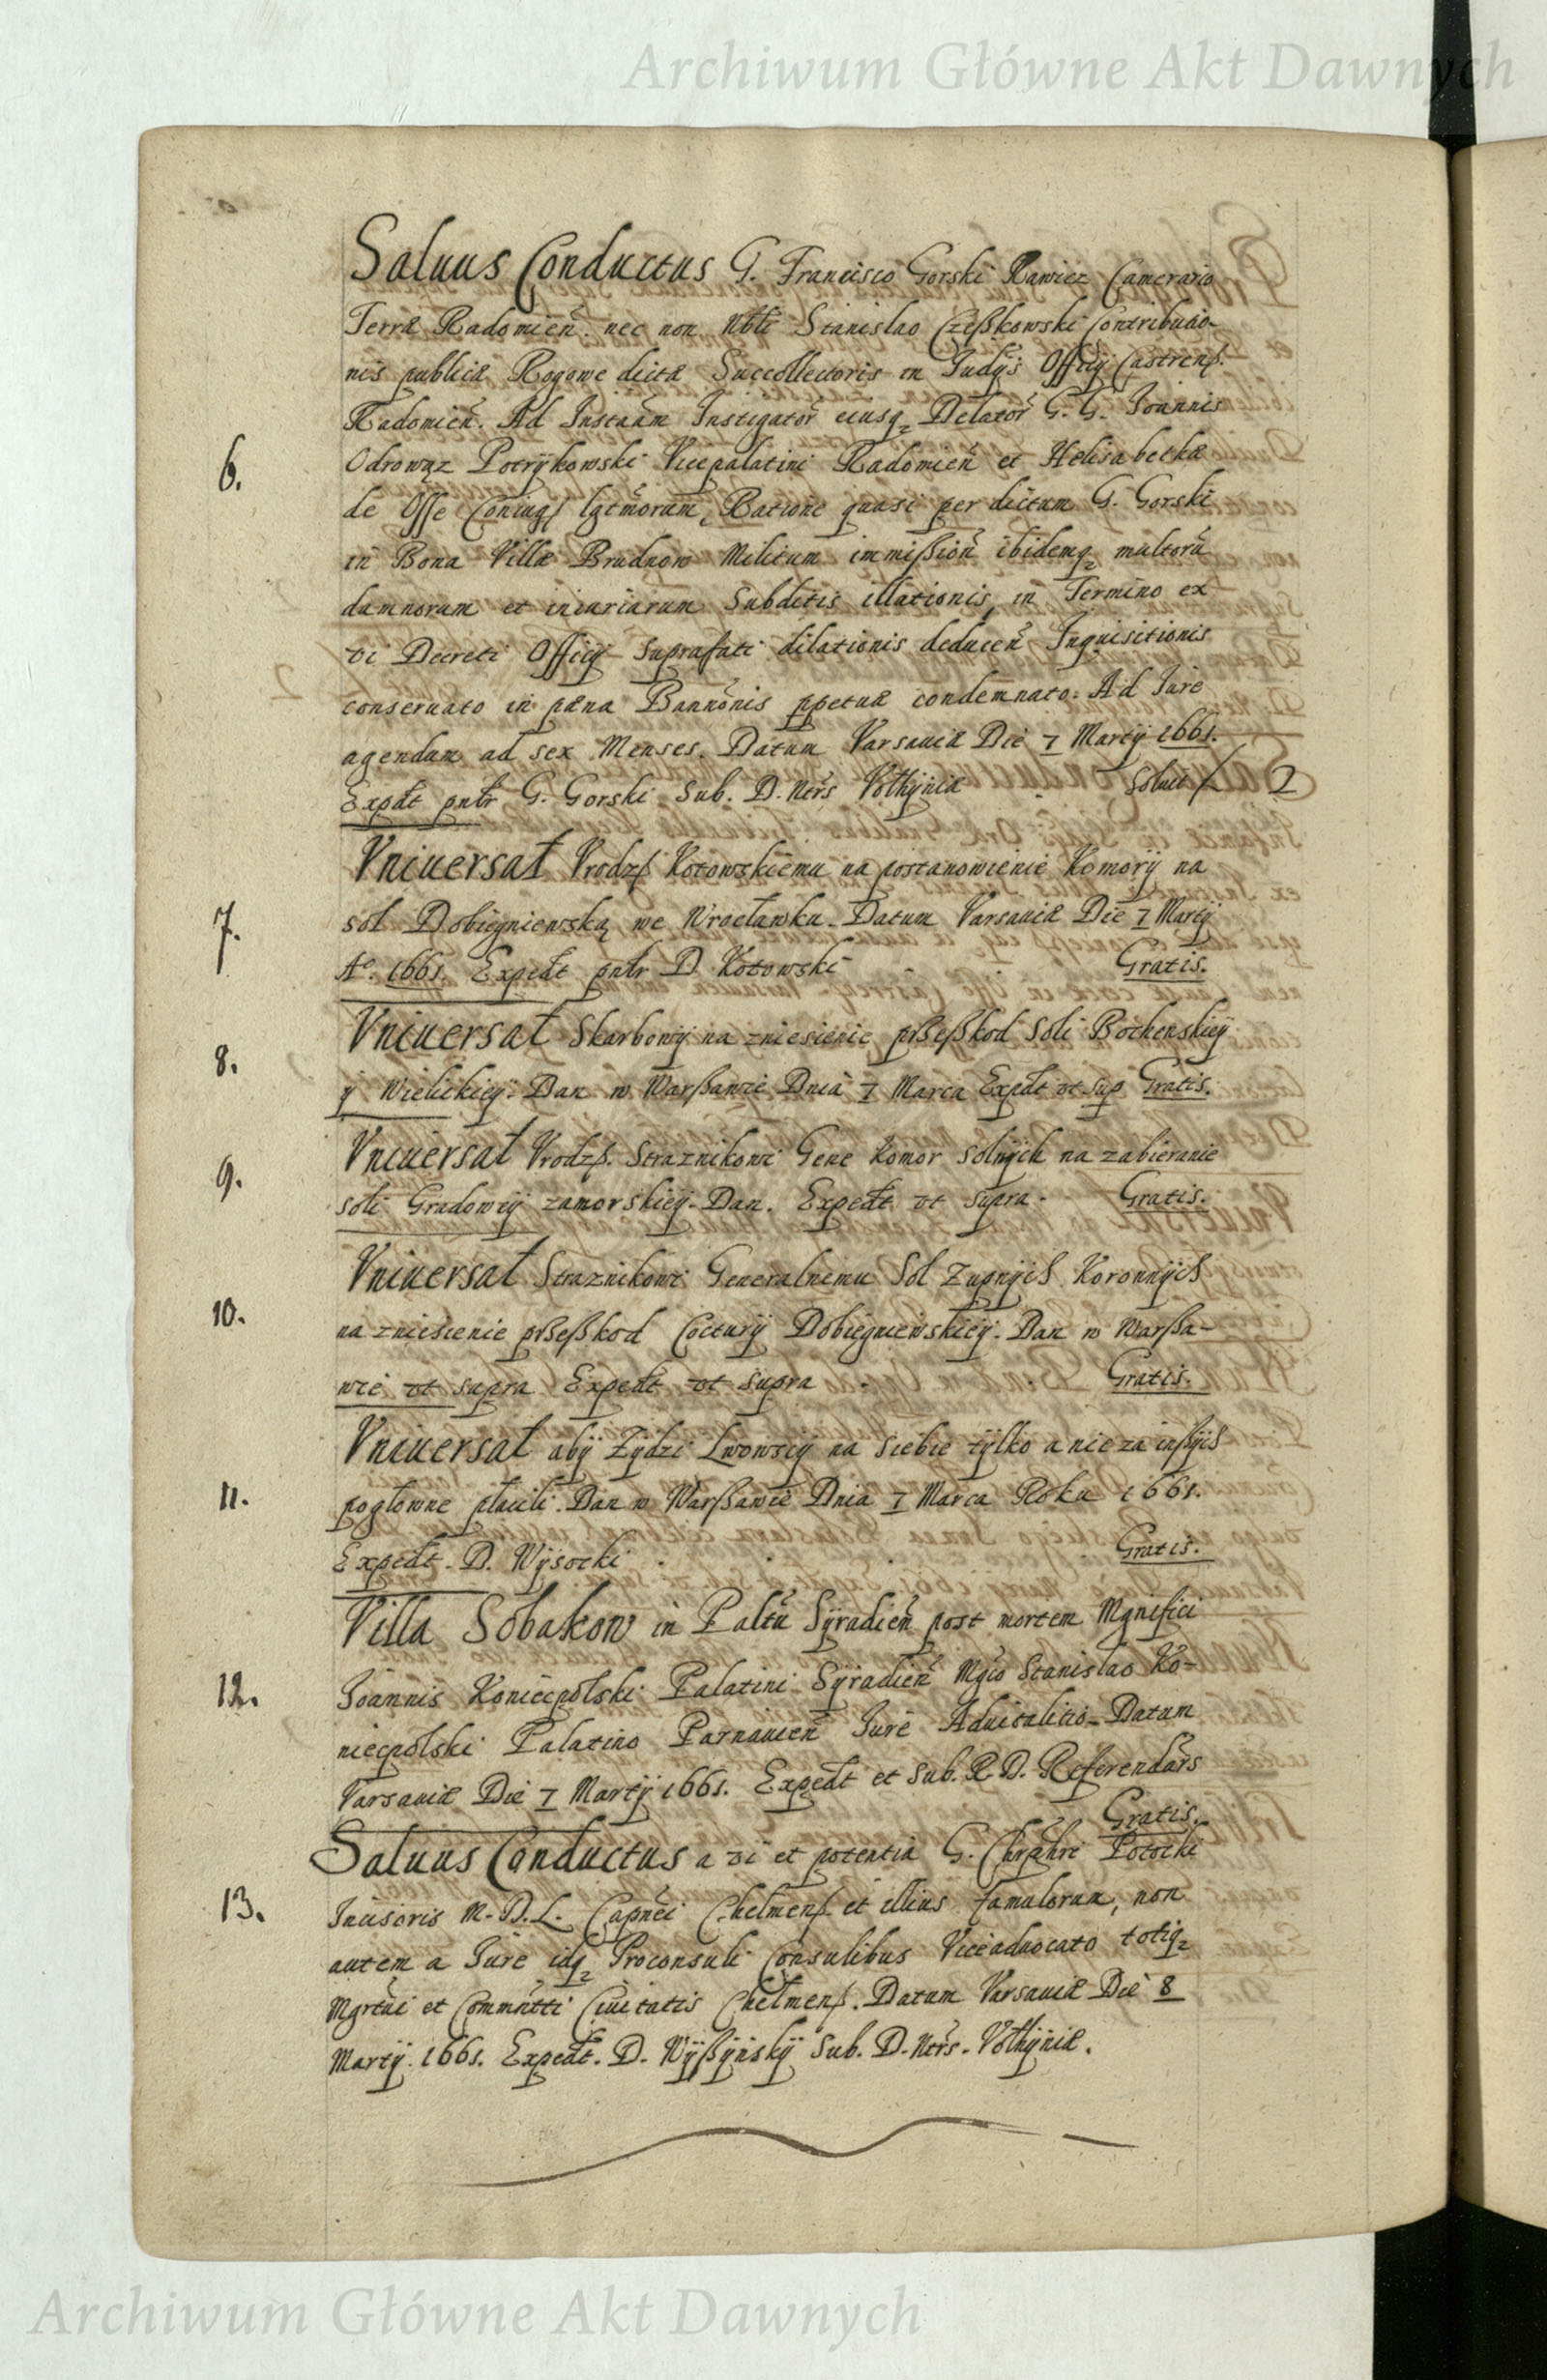 Archiwum Główne Akt Dawnych
Saluus Conductus G. Francisco Gorski Rawicz Camerario
Terræ Radomien̄. nec non Nbli Stanislao Czeßkowski Contributio-
nis publicæ Rogowe dictæ Succollectoris in Judijs Officij Castrenß.
Radomien̄. Ad Instañm Instigator̄ eiusq₂ Delator̄ G. G. Joannis
6.
Odrowąz Potrykowski Vicepalatini Radomien̄ et Helisabethæ
de Osse Coniug lgt̄morum, Ratione quasi per dictum G. Gorski
in Bona Villæ Brudnow Militum immißion̄ ibidemq₂ multorū
damnorum et iniuriarum Subditis illationis, in Termino ex
vi Decreti Officij Suprafati dilationis deducen̄ Inquisitionis
conseruato in pæna Bannōnis ppetuæ condemnato. Ad Jure
agendum ad sex Menses. Datum Varsauiæ Die 7 Martij 1661.
Expdt pntr G. Gorski Sub. D. Nērs Volhyniæ Soluit f 2
7.
Vniuersał Vrodzß Kotowskiemu na postanowienie Komory na
sol Dobiegniewską we Wrocławku. Datum Varsauiæ Die 7 Martij
Aº. 1661. Expedt pntr D Kotowski Gratis.
8.
Vniuersał Skarbowy na zniesienie prßeßkod Soli Bochenskiey
y Wielickiey. Dan w Warßawie Dnia 7 Marca Expdt vt sup Gratis.
9.
Vniuersał Vrodzß. Straznikowi Gene Komor Solnych na zabieranie
soli Gradowey zamorskiey. Dan. Expedt vt supra. Gratis.
10.
Vniuersał Straznikowi Generalnemu Sol Zupnych Koronnych
na zniesienie prßeßkod Cocturÿ Dobiegniewskiey. Dan w Warßa-
wie vt supra Expedt vt supra Gratis.
11.
Vniuersał aby Zydzi Lwowscy na siebie tylko a nie za inßych
pogłowne płacili. Dan w Warßawie Dnia 7 Marca Roku 1661.
Expedt. D. Wysocki Gratis.
12.
Villa Sobakow in Paltū Syradien̄ post mortem Mgnifici
Joannis Koniecpolski Palatini Syradien̄ Mgco Stanislao Ko-
niecpolski Palatino Parnauien̄ Jure Aduitalitio. Datum
Varsauiæ Die 7 Martij 1661. Expedt et Sub. R. D. Referendārs
Gratis.
13.
Saluus Conductus a vi et potentia G. Chrphri Potocki
Incisoris M. D. L. Capnei Chelmenß. et illius famulorum, non
autem a Jure idq₂ Proconsuli Consulibus Viceaduocato totiq₂
Mgrtui et Commntti Ciuitatis Chelmenß. Datum Varsauiæ Die 8
Martij. 1661. Expedt. D. Wyßynsky Sub. D. Nērs. Volhyniæ.
Archiwum Główne Akt Dawnych